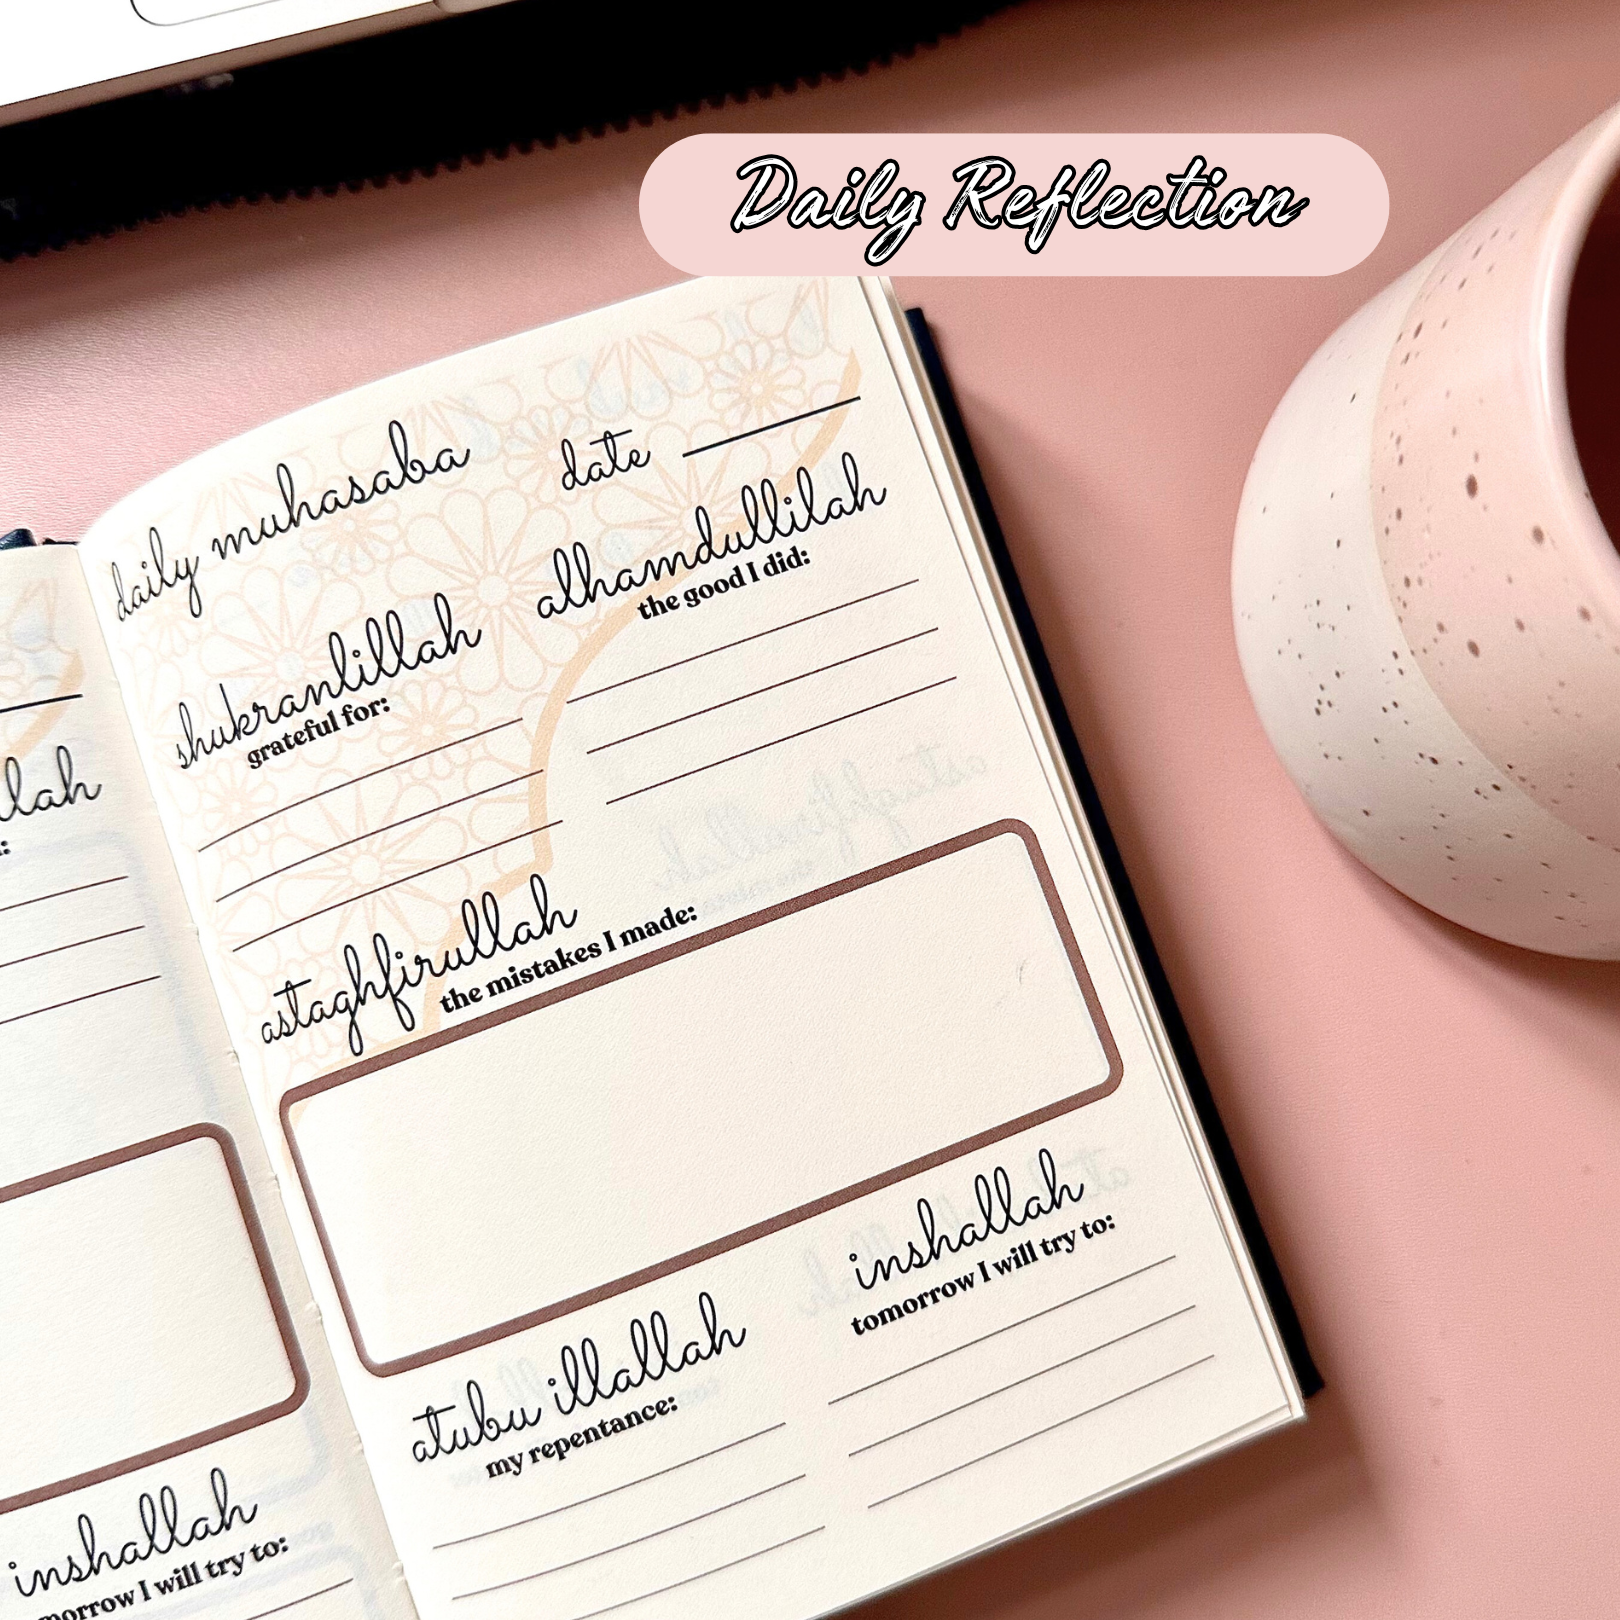 Daily Reflection
daily muhasaba
date
shukranlillah
grateful for:
alhamdullilah
the good I did:
astaghfirullah
the mistakes I made:
atubu illallah
my repentance:
inshallah
tomorrow I will try to:
inshallah
I will try to: